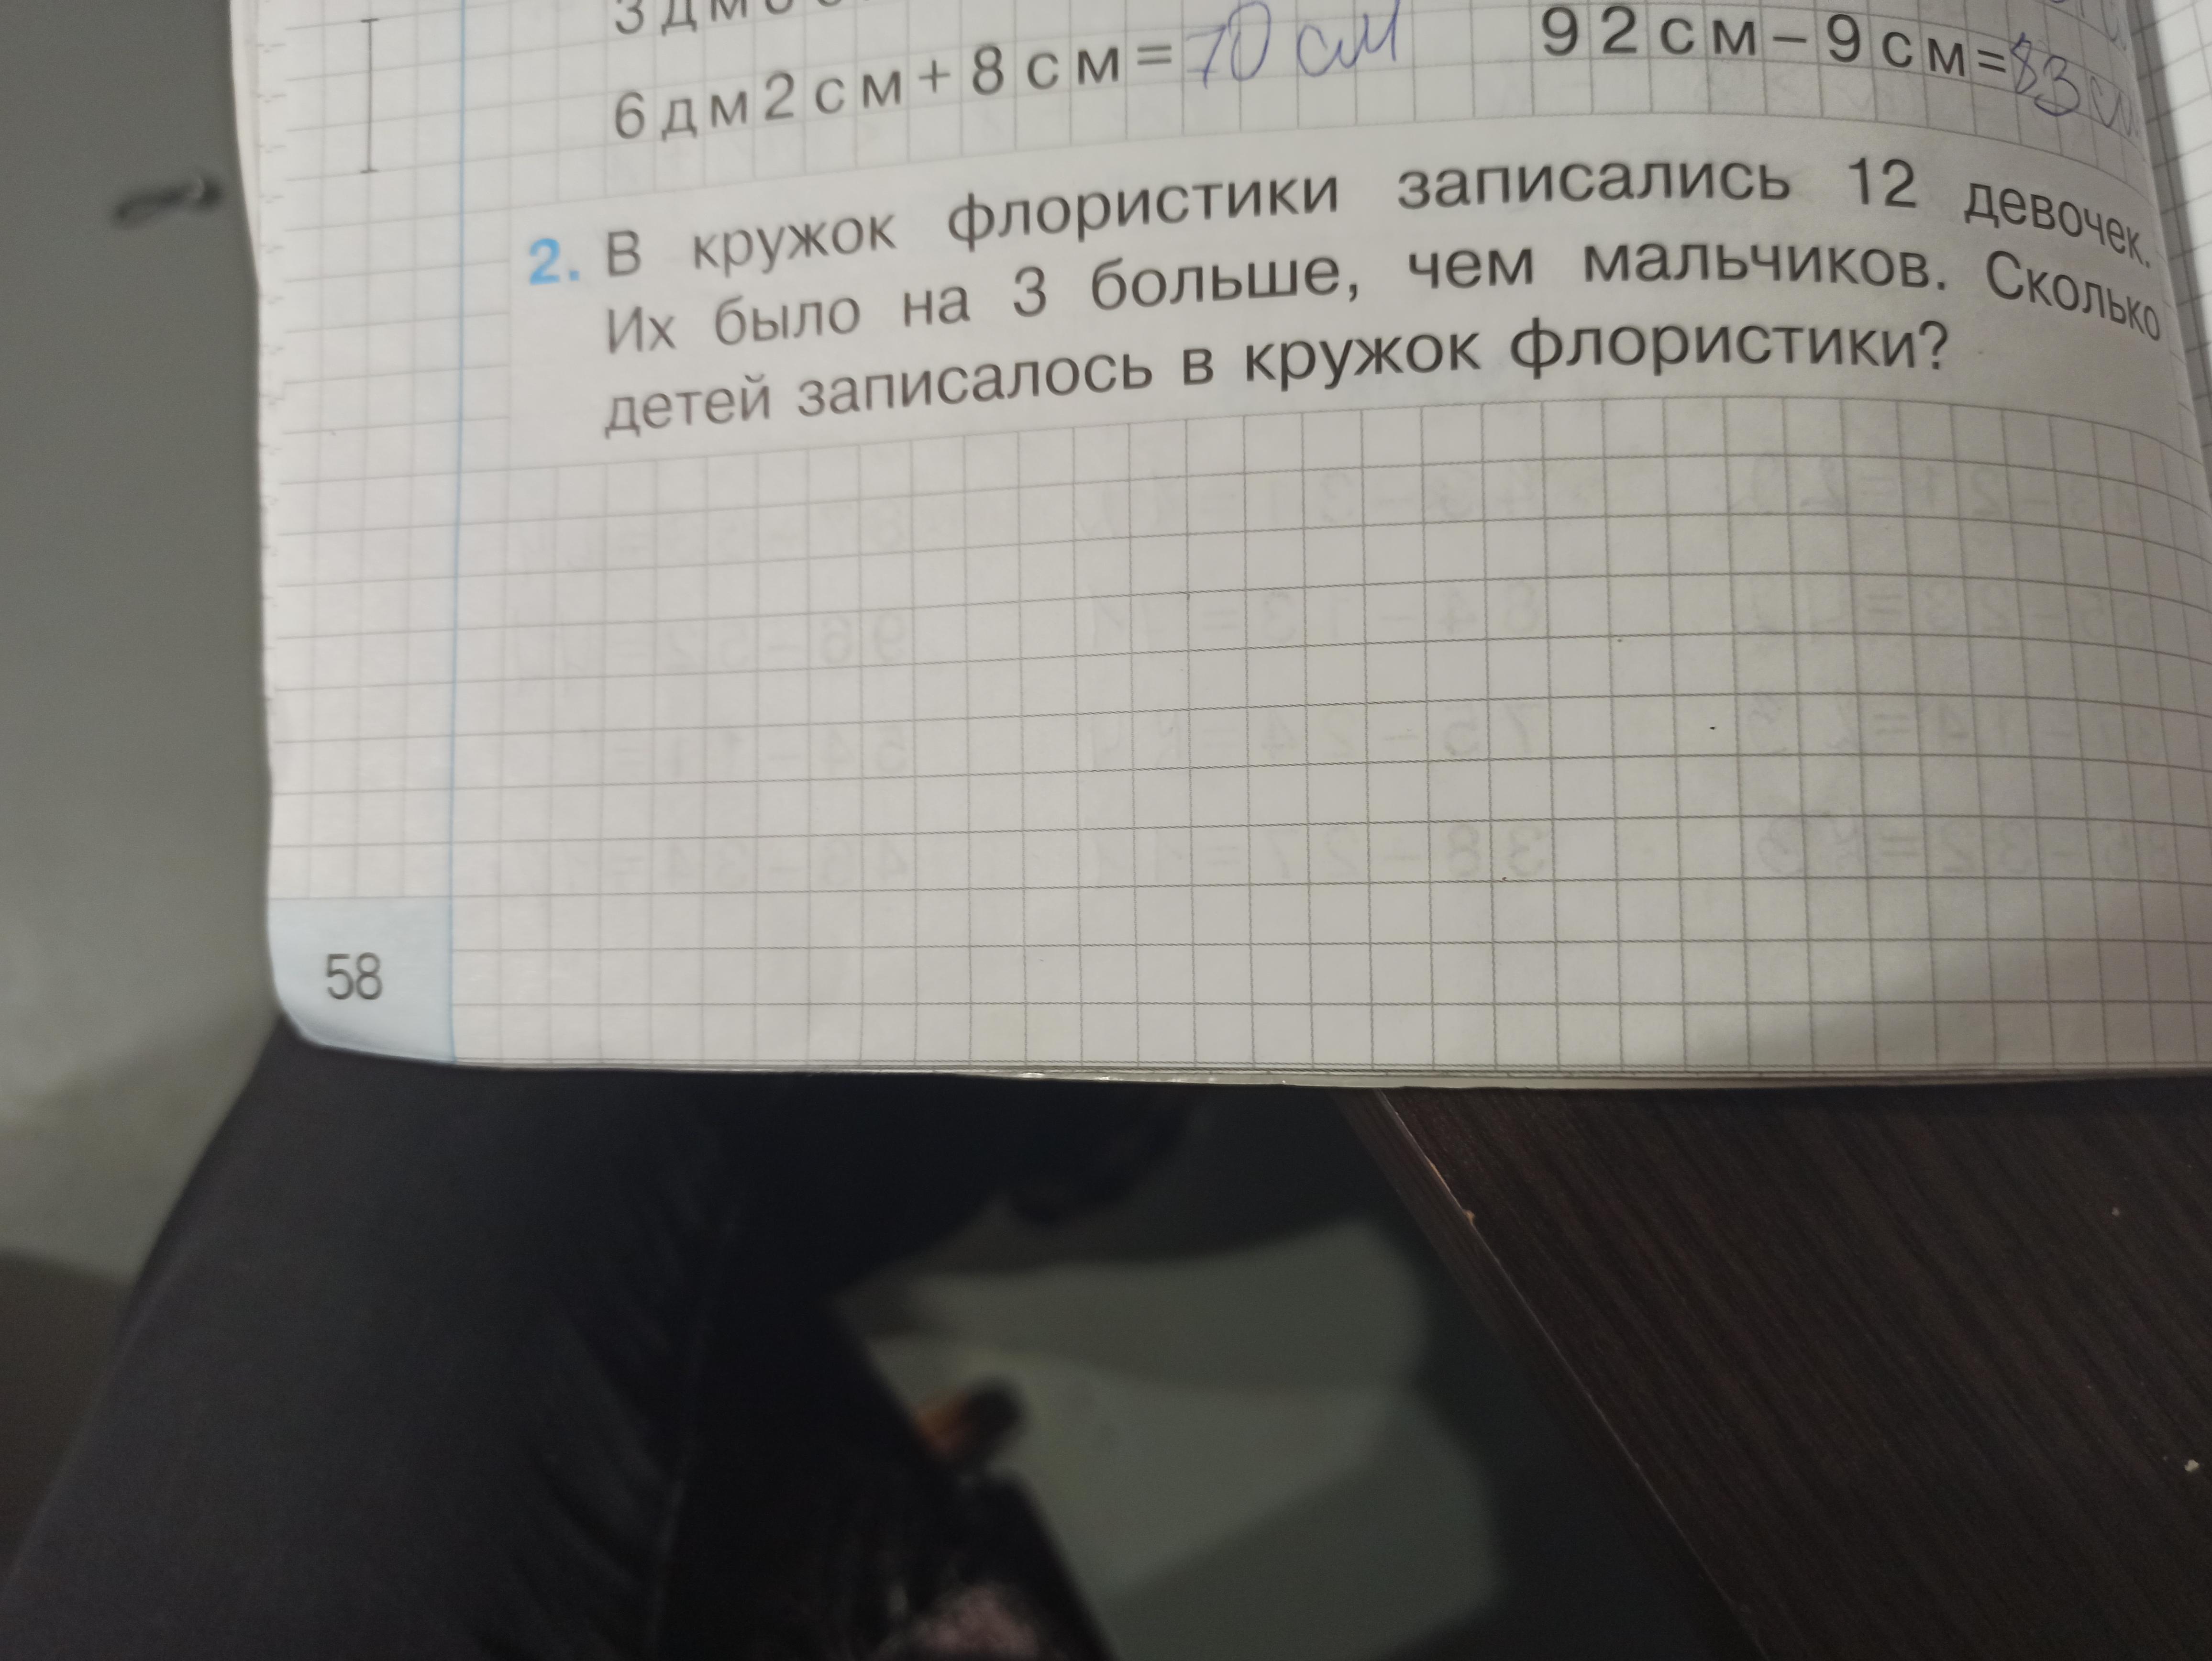 6 дм 2 см + 8 см = 70 см 92 см – 9 см = 83 см
2. В кружок флористики записались 12 девочек.
Их было на 3 больше, чем мальчиков. Сколько
детей записалось в кружок флористики?
58